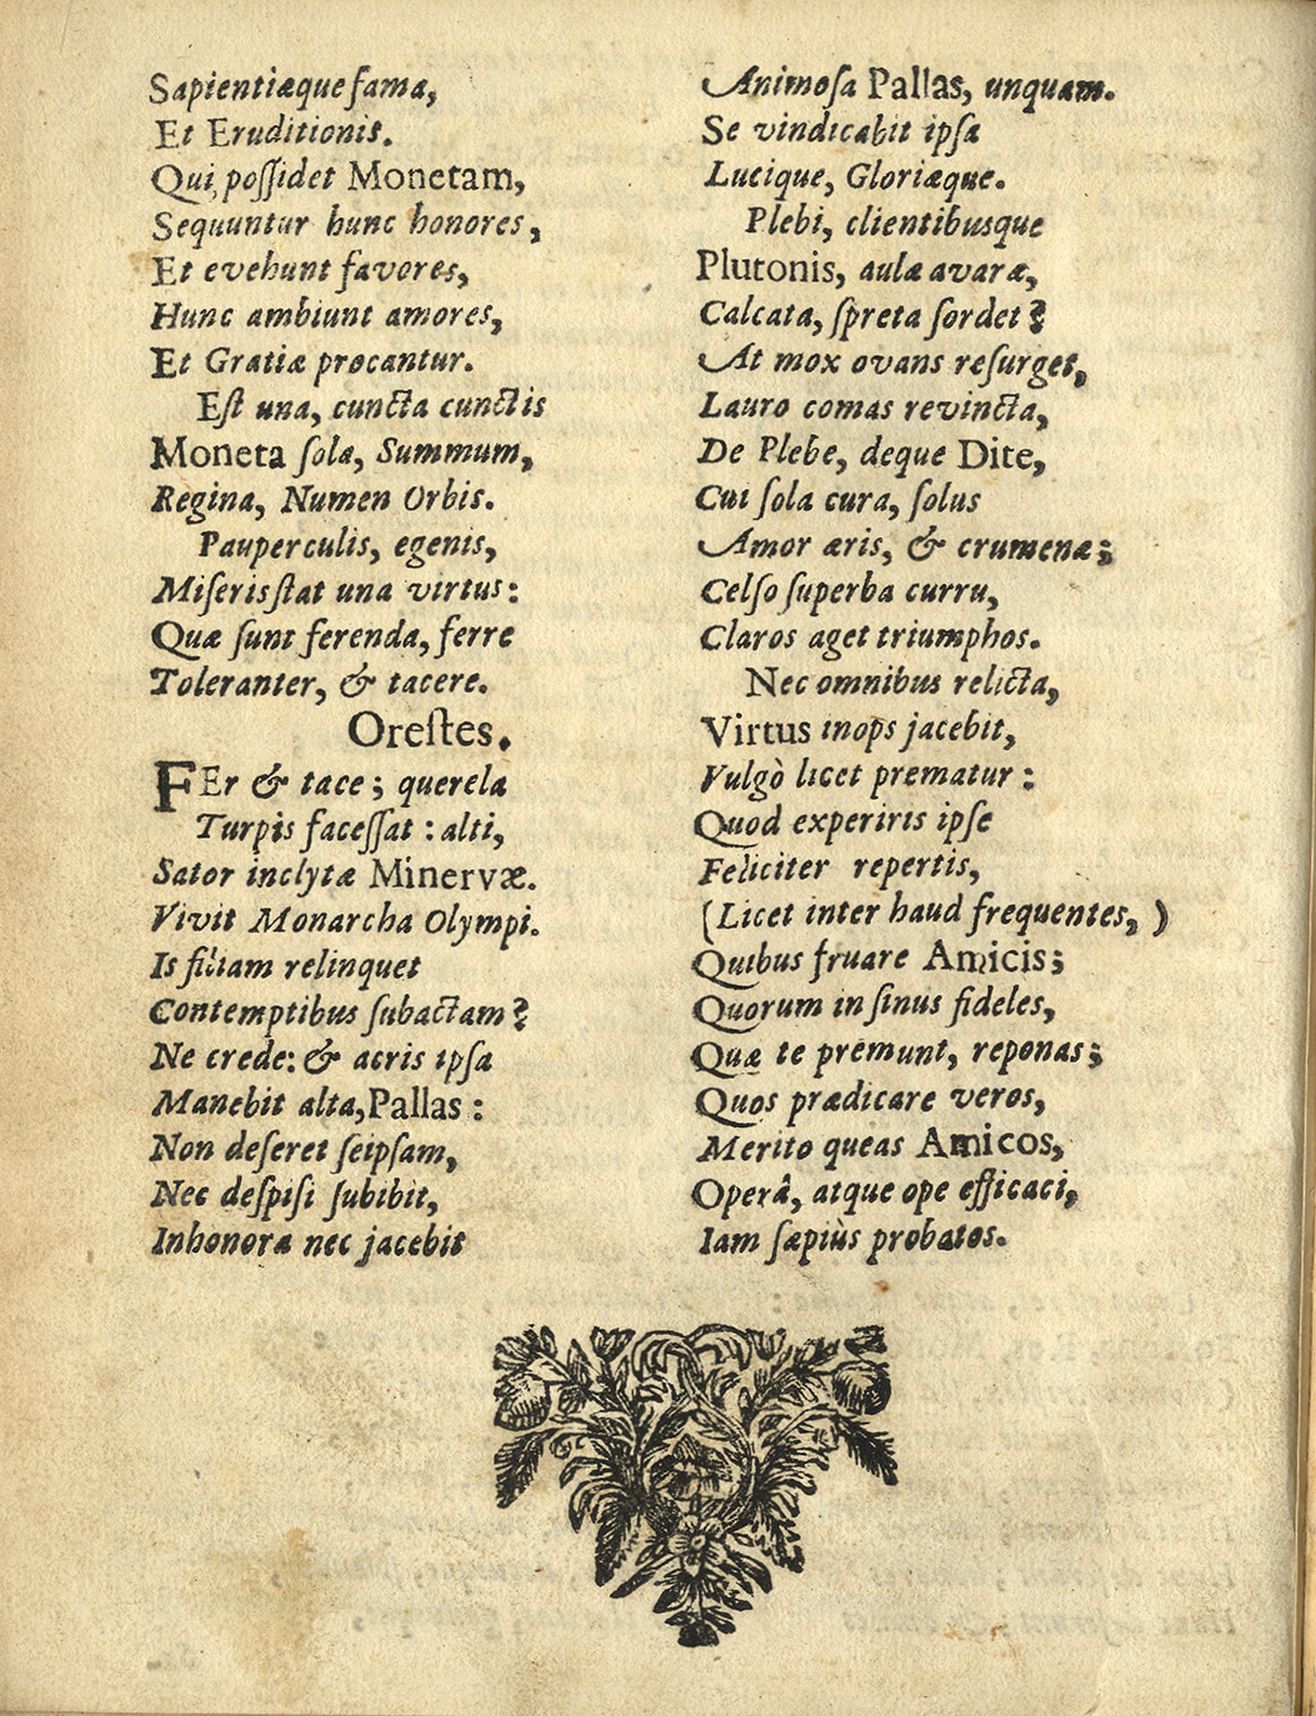 Sapientiæque fama,
Et Eruditionis.
Qui possidet Monetam,
Sequuntur hunc honores,
Et evehunt favores,
Hunc ambiunt amores,
Et Gratiæ procantur.
Est una, cuncta cunctis
Moneta sola, Summum,
Regina, Numen Orbis.
Pauperculis, egenis,
Miseris stat una virtus:
Quæ sunt ferenda, ferre
Toleranter, & tacere.
Orestes.
FEr & tace; querela
Turpis facessat: alti,
Sator inclytæ Minervæ.
Vivit Monarcha Olympi.
Is filiam relinquet
Contemptibus subactam?
Ne crede: & acris ipsa
Manebit alta, Pallas:
Non deseret seipsam,
Nec despisi subibit,
Inhonora nec jacebit
Animosa Pallas, unquam.
Se vindicabit ipsa
Lucique, Gloriæque.
Plebi, clientibusque
Plutonis, aulæ avaræ,
Calcata, spreta sordet?
At mox ovans resurget,
Lauro comas revincta,
De Plebe, deque Dite,
Cui sola cura, solus
Amor æris, & crumenæ;
Celso superba curru,
Claros aget triumphos.
Nec omnibus relicta,
Virtus inops jacebit,
Vulgò licet prematur:
Quod experiris ipse
Feliciter repertis,
(Licet inter haud frequentes,)
Quibus fruare Amicis;
Quorum in sinus fideles,
Quæ te premunt, reponas;
Quos prædicare veros,
Merito queas Amicos,
Operâ, atque ope efficaci,
Iam sæpiùs probatos.